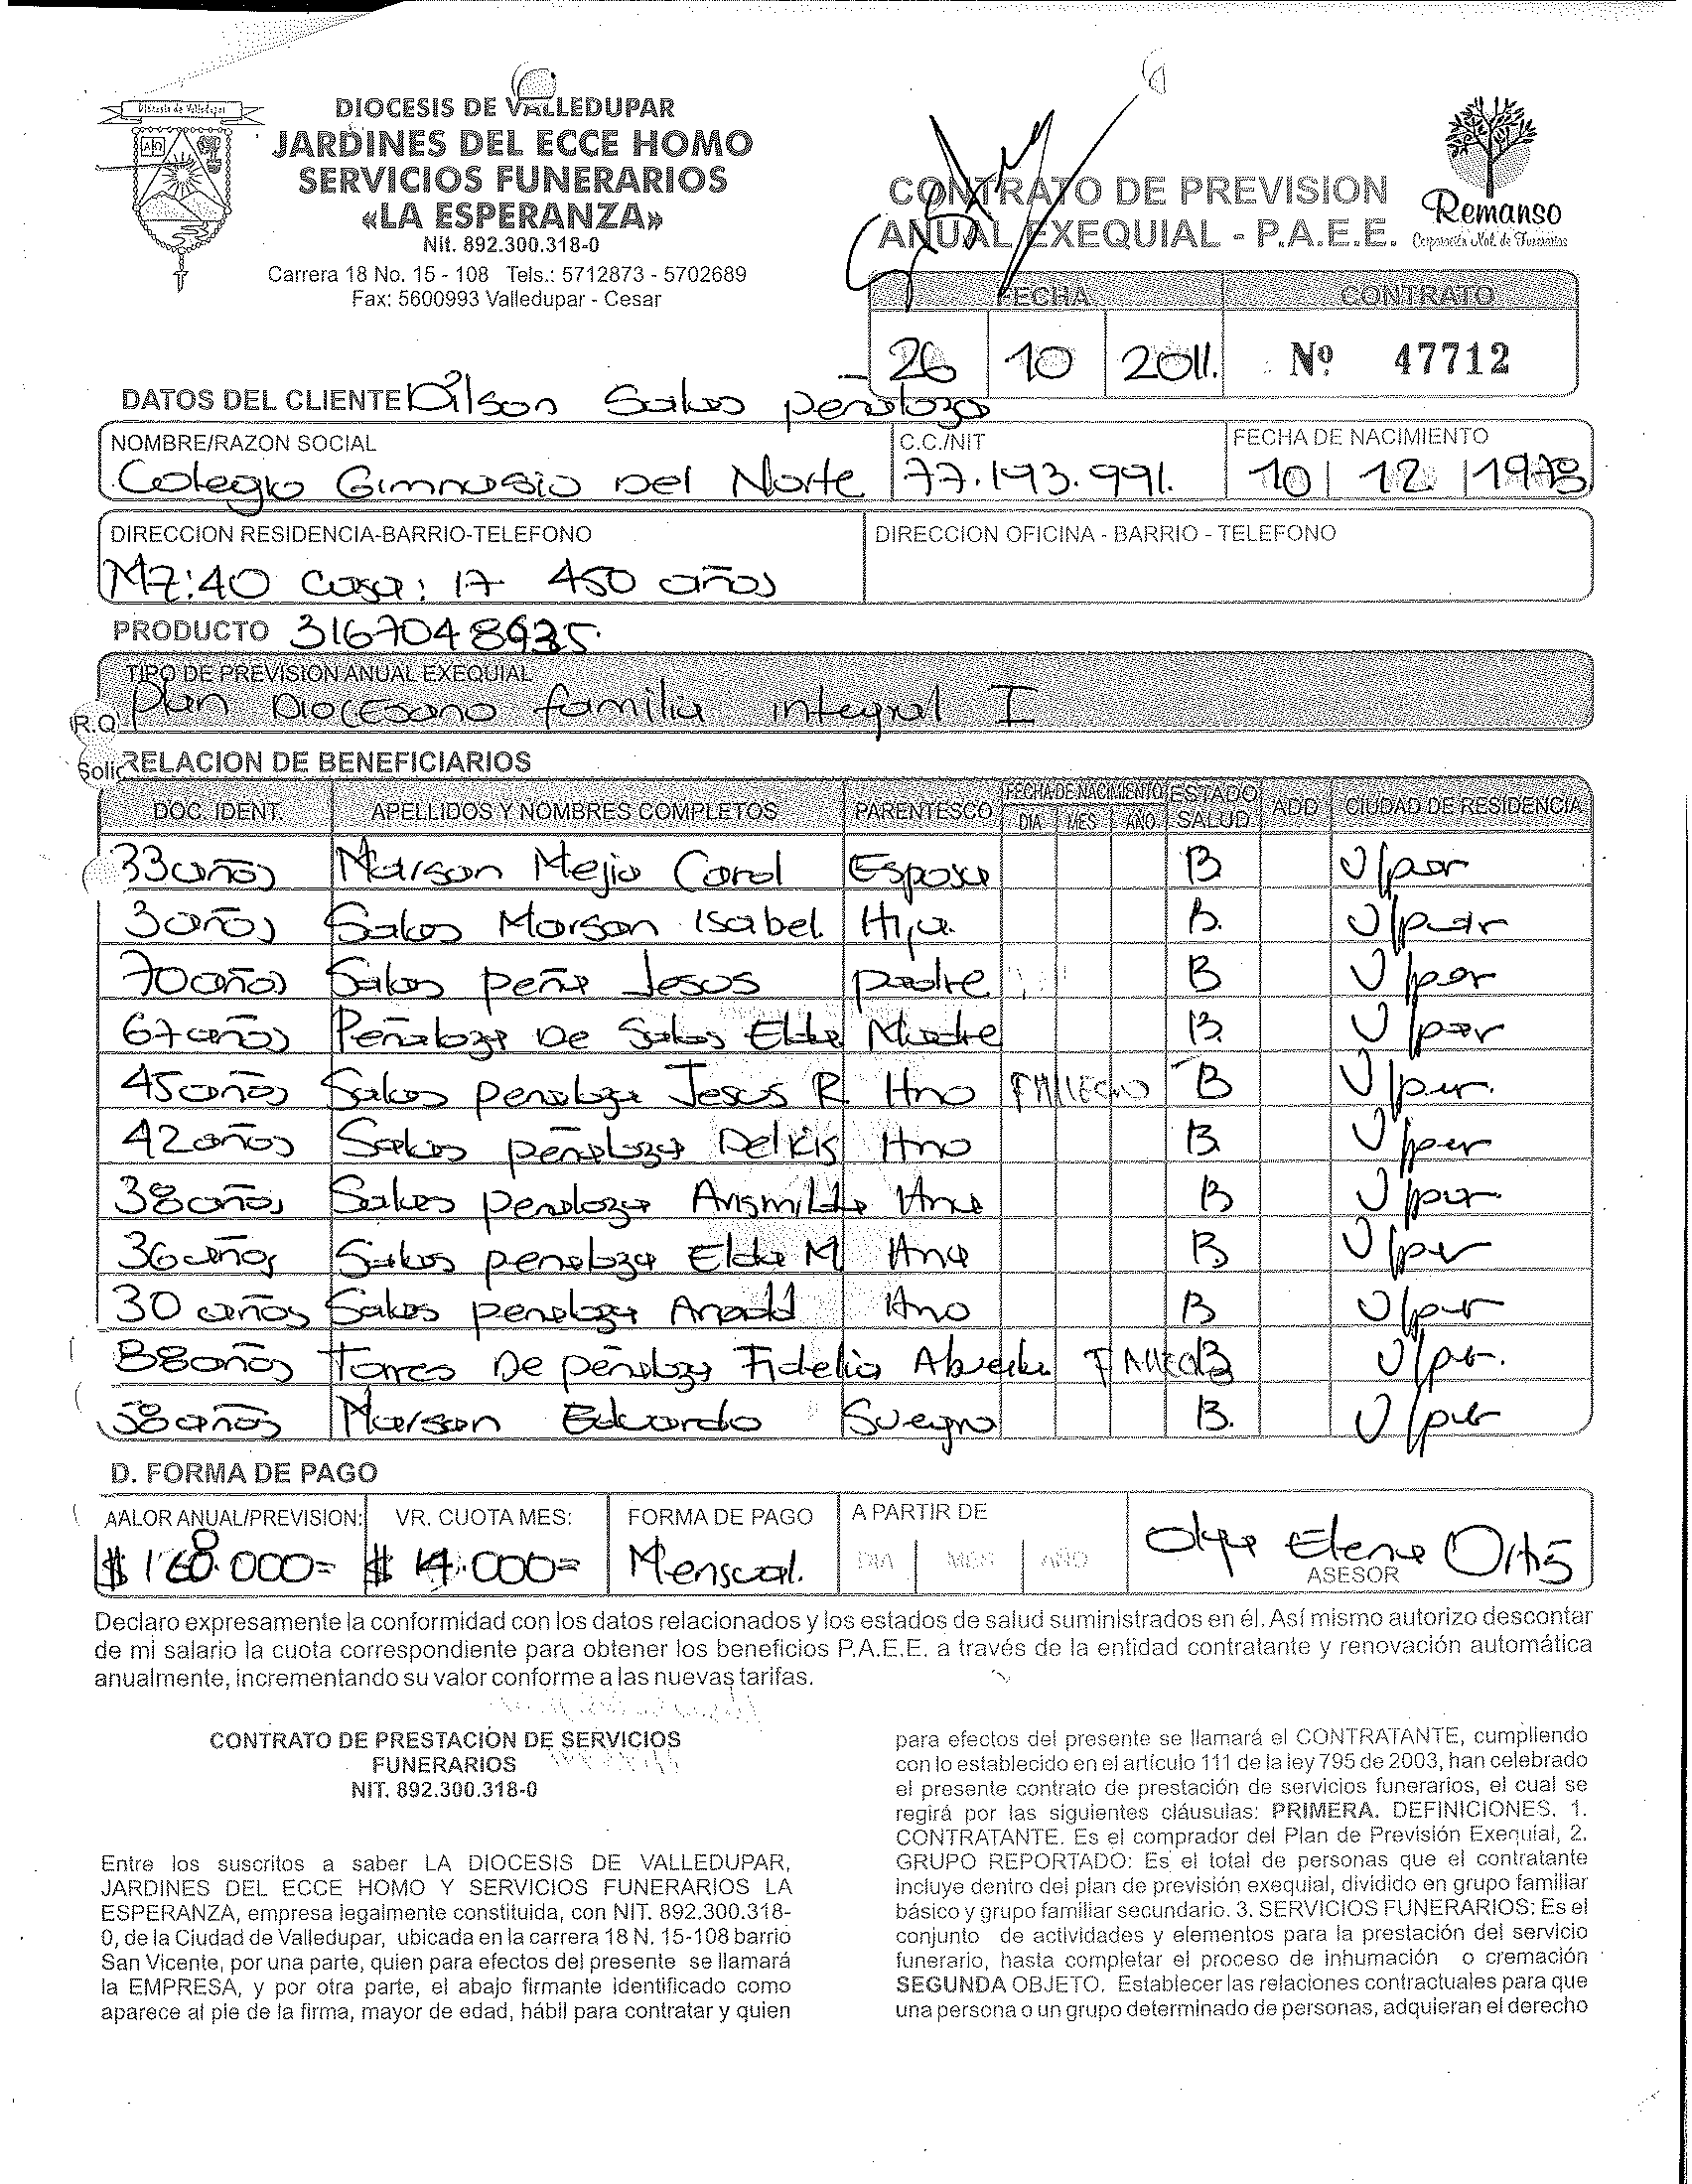 Diócesis de Valledupar
DIOCESIS DE VALLEDUPAR
JARDINES DEL ECCE HOMO
SERVICIOS FUNERARIOS
«LA ESPERANZA»
Nit. 892.300.318-0
Carrera 18 No. 15 - 108 Tels.: 5712873 - 5702689
Fax: 5600993 Valledupar - Cesar
CONTRATO DE PREVISION
ANUAL EXEQUIAL - P.A.E.E.
Remanso
Corporación Nal. de Funerarias
FECHA CONTRATO
26 10 2011. Nº 47712
DATOS DEL CLIENTE Dilson Salas penaloza
NOMBRE/RAZON SOCIAL C.C./NIT FECHA DE NACIMIENTO
Colegio Gimnasio Del Norte 77.193.991. 10 | 12 | 1978
DIRECCION RESIDENCIA-BARRIO-TELEFONO DIRECCION OFICINA - BARRIO - TELEFONO
Mz:40 casa: 17 450 años
PRODUCTO 3167048935
TIPO DE PREVISION ANUAL EXEQUIAL
plan Diocesano familia integral I
R.Q
Solic
RELACION DE BENEFICIARIOS
DOC. IDENT. APELLIDOS Y NOMBRES COMPLETOS PARENTESCO FECHA DE NACIMIENTO DIA MES AÑO ESTADO SALUD ADD CIUDAD DE RESIDENCIA
33 años Marson Mejia Carol Esposa B V/par
3 años Salas Marson Isabel Hija B. V/par
70 años Salas peña Jesus padre B V/par
67 años Peñaloza De Salas Elda Madre B. V/par
45 años Salas penaloza Jesus R. Hno FALLECIO B V/par.
42 años Salas peñaloza Delkis Hno B. V/par
38 años Salas penaloza Arismilda Hna B V/par
36 años Salas penaloza Elda M Hna B V/par
30 años Salas penaloza Anadd Hno B V/par
88 años Torres De peñaloza Fidelia Abuela FALLECIO B V/par.
58 años Marson Eduardo Suegro B. V/par
D. FORMA DE PAGO
AALOR ANUAL/PREVISION: VR. CUOTA MES: FORMA DE PAGO A PARTIR DE
$ 168.000= $ 14.000= Mensual. DIA MES AÑO Olga Elena Ortiz
ASESOR
Declaro expresamente la conformidad con los datos relacionados y los estados de salud suministrados en él. Así mismo autorizo descontar
de mi salario la cuota correspondiente para obtener los beneficios P.A.E.E. a través de la entidad contratante y renovación automática
anualmente, incrementando su valor conforme a las nuevas tarifas.
CONTRATO DE PRESTACIÓN DE SERVICIOS
FUNERARIOS
NIT. 892.300.318-0
Entre los suscritos a saber LA DIOCESIS DE VALLEDUPAR,
JARDINES DEL ECCE HOMO Y SERVICIOS FUNERARIOS LA
ESPERANZA, empresa legalmente constituida, con NIT. 892.300.318-
0, de la Ciudad de Valledupar, ubicada en la carrera 18 N. 15-108 barrio
San Vicente, por una parte, quien para efectos del presente se llamará
la EMPRESA, y por otra parte, el abajo firmante identificado como
aparece al pie de la firma, mayor de edad, hábil para contratar y quien
para efectos del presente se llamará el CONTRATANTE, cumpliendo
con lo establecido en el artículo 111 de la ley 795 de 2003, han celebrado
el presente contrato de prestación de servicios funerarios, el cual se
regirá por las siguientes cláusulas: PRIMERA. DEFINICIONES. 1.
CONTRATANTE. Es el comprador del Plan de Previsión Exequial, 2.
GRUPO REPORTADO: Es el total de personas que el contratante
incluye dentro del plan de previsión exequial, dividido en grupo familiar
básico y grupo familiar secundario. 3. SERVICIOS FUNERARIOS: Es el
conjunto de actividades y elementos para la prestación del servicio
funerario, hasta completar el proceso de inhumación o cremación
SEGUNDA OBJETO. Establecer las relaciones contractuales para que
una persona o un grupo determinado de personas, adquieran el derecho